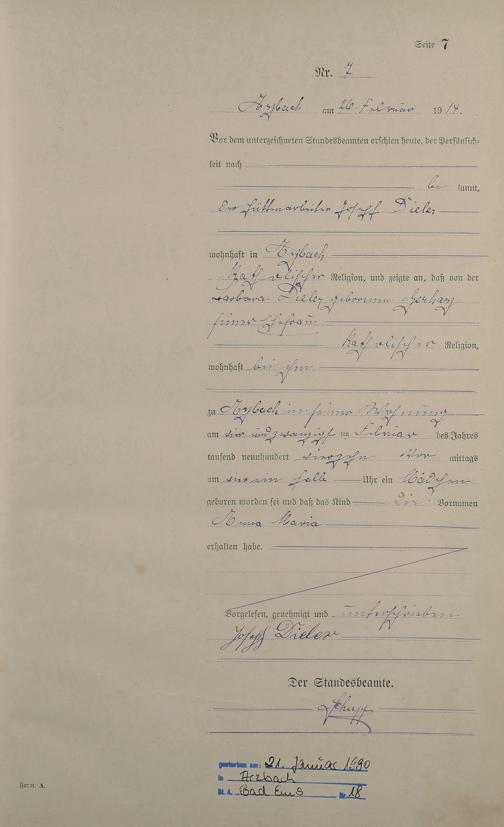 Seite 7
Nr. 7
Arzbach am 26. Februar 1914.
Vor dem unterzeichneten Standesbeamten erschien heute, der Persönlich-
keit nach
be kannt,
der Hüttenarbeiter Joseph Dieler
wohnhaft in Arzbach
katholischer Religion, und zeigte an, daß von der
Barbara Dieler geborenen
seiner Ehefrau
katholischer Religion,
wohnhaft bei ihm
zu Arzbach in seiner Wohnung
am vier und zwanzigsten Februar des Jahres
tausend neunhundert vierzehn Vor mittags
um halb Uhr ein Mädchen
geboren worden sei und daß das Kind die Vornamen
Anna Maria
erhalten habe.
Vorgelesen, genehmigt und unterschrieben
Joseph Dieler
Der Standesbeamte.
gestorben am: 21. Januar 1990
in Arzbach
St. A. Bad Ems Nr. 18
Form. A.